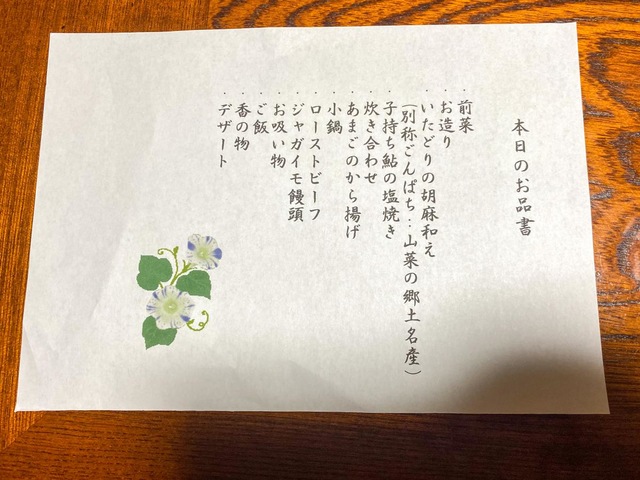 本日のお品書
・前菜
・お造り
・いたどりの胡麻和え
(別称ごんぱち:山菜の郷土名産)
・子持ち鮎の塩焼き
・炊き合わせ
・あまごのから揚げ
・小鍋
・ローストビーフ
・ジャガイモ饅頭
・お吸い物
・ご飯
・香の物
・デザート